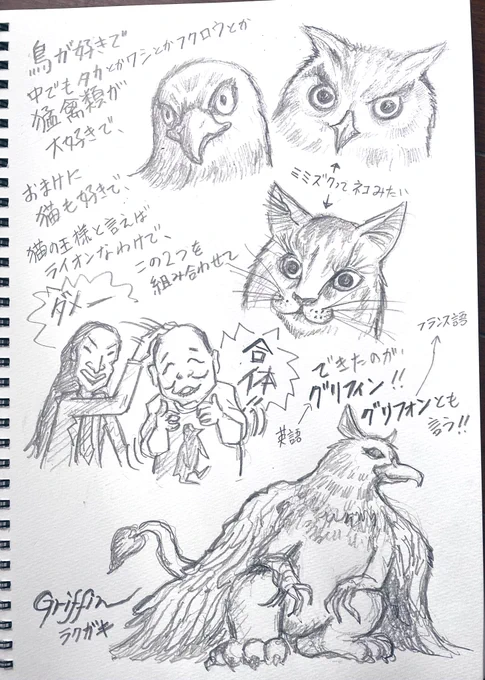 鳥が好きで
中でもタカとかワシとかフクロウとか
猛禽類が
大好きで、
おまけに
猫も好きで、
猫の王様と言えば
ライオンなわけで、
この2つを
組み合わせて
ミミズクってネコみたい
ダメー
合体
できたのが
グリフィン!!
英語
フランス語
グリフォンとも
言う!!
Griffin
ラクガキ